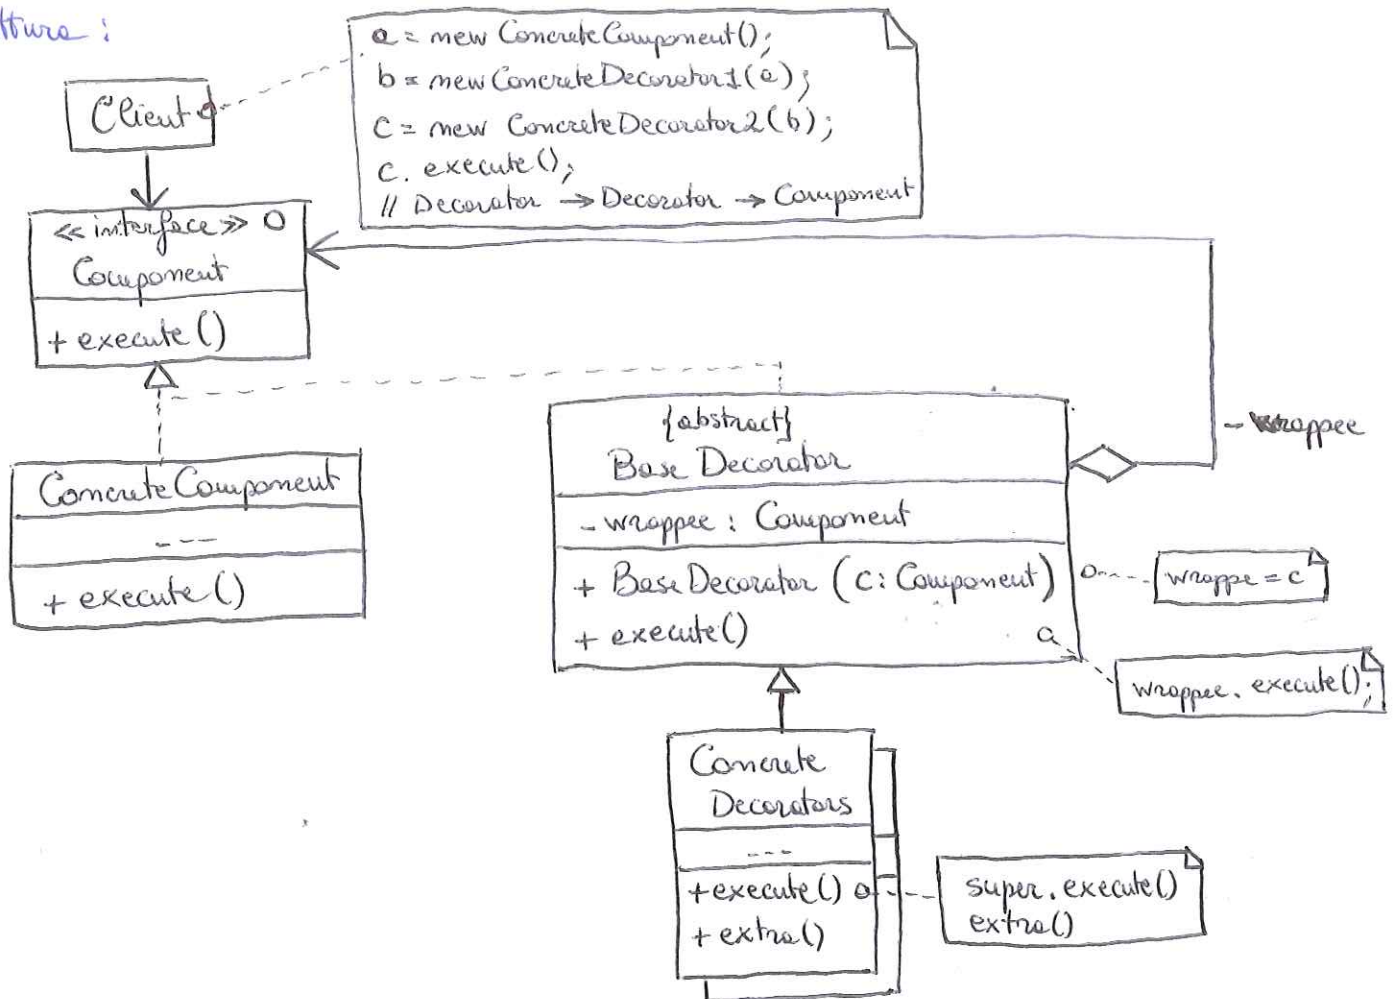 ttura :
Client
a = new ConcreteComponent();
b = new ConcreteDecorator1(a);
c = new ConcreteDecorator2(b);
c. execute();
// Decorator → Decorator → Component
<< interface >> O
Component
+ execute()
ConcreteComponent
---
+ execute()
{abstract}
Base Decorator
- wrappee : Component
+ BaseDecorator (c: Component)
+ execute()
- wrappee
wrappe = c
wrappee. execute();
Concrete
Decorators
---
+execute()
+ extra()
super. execute()
extra()